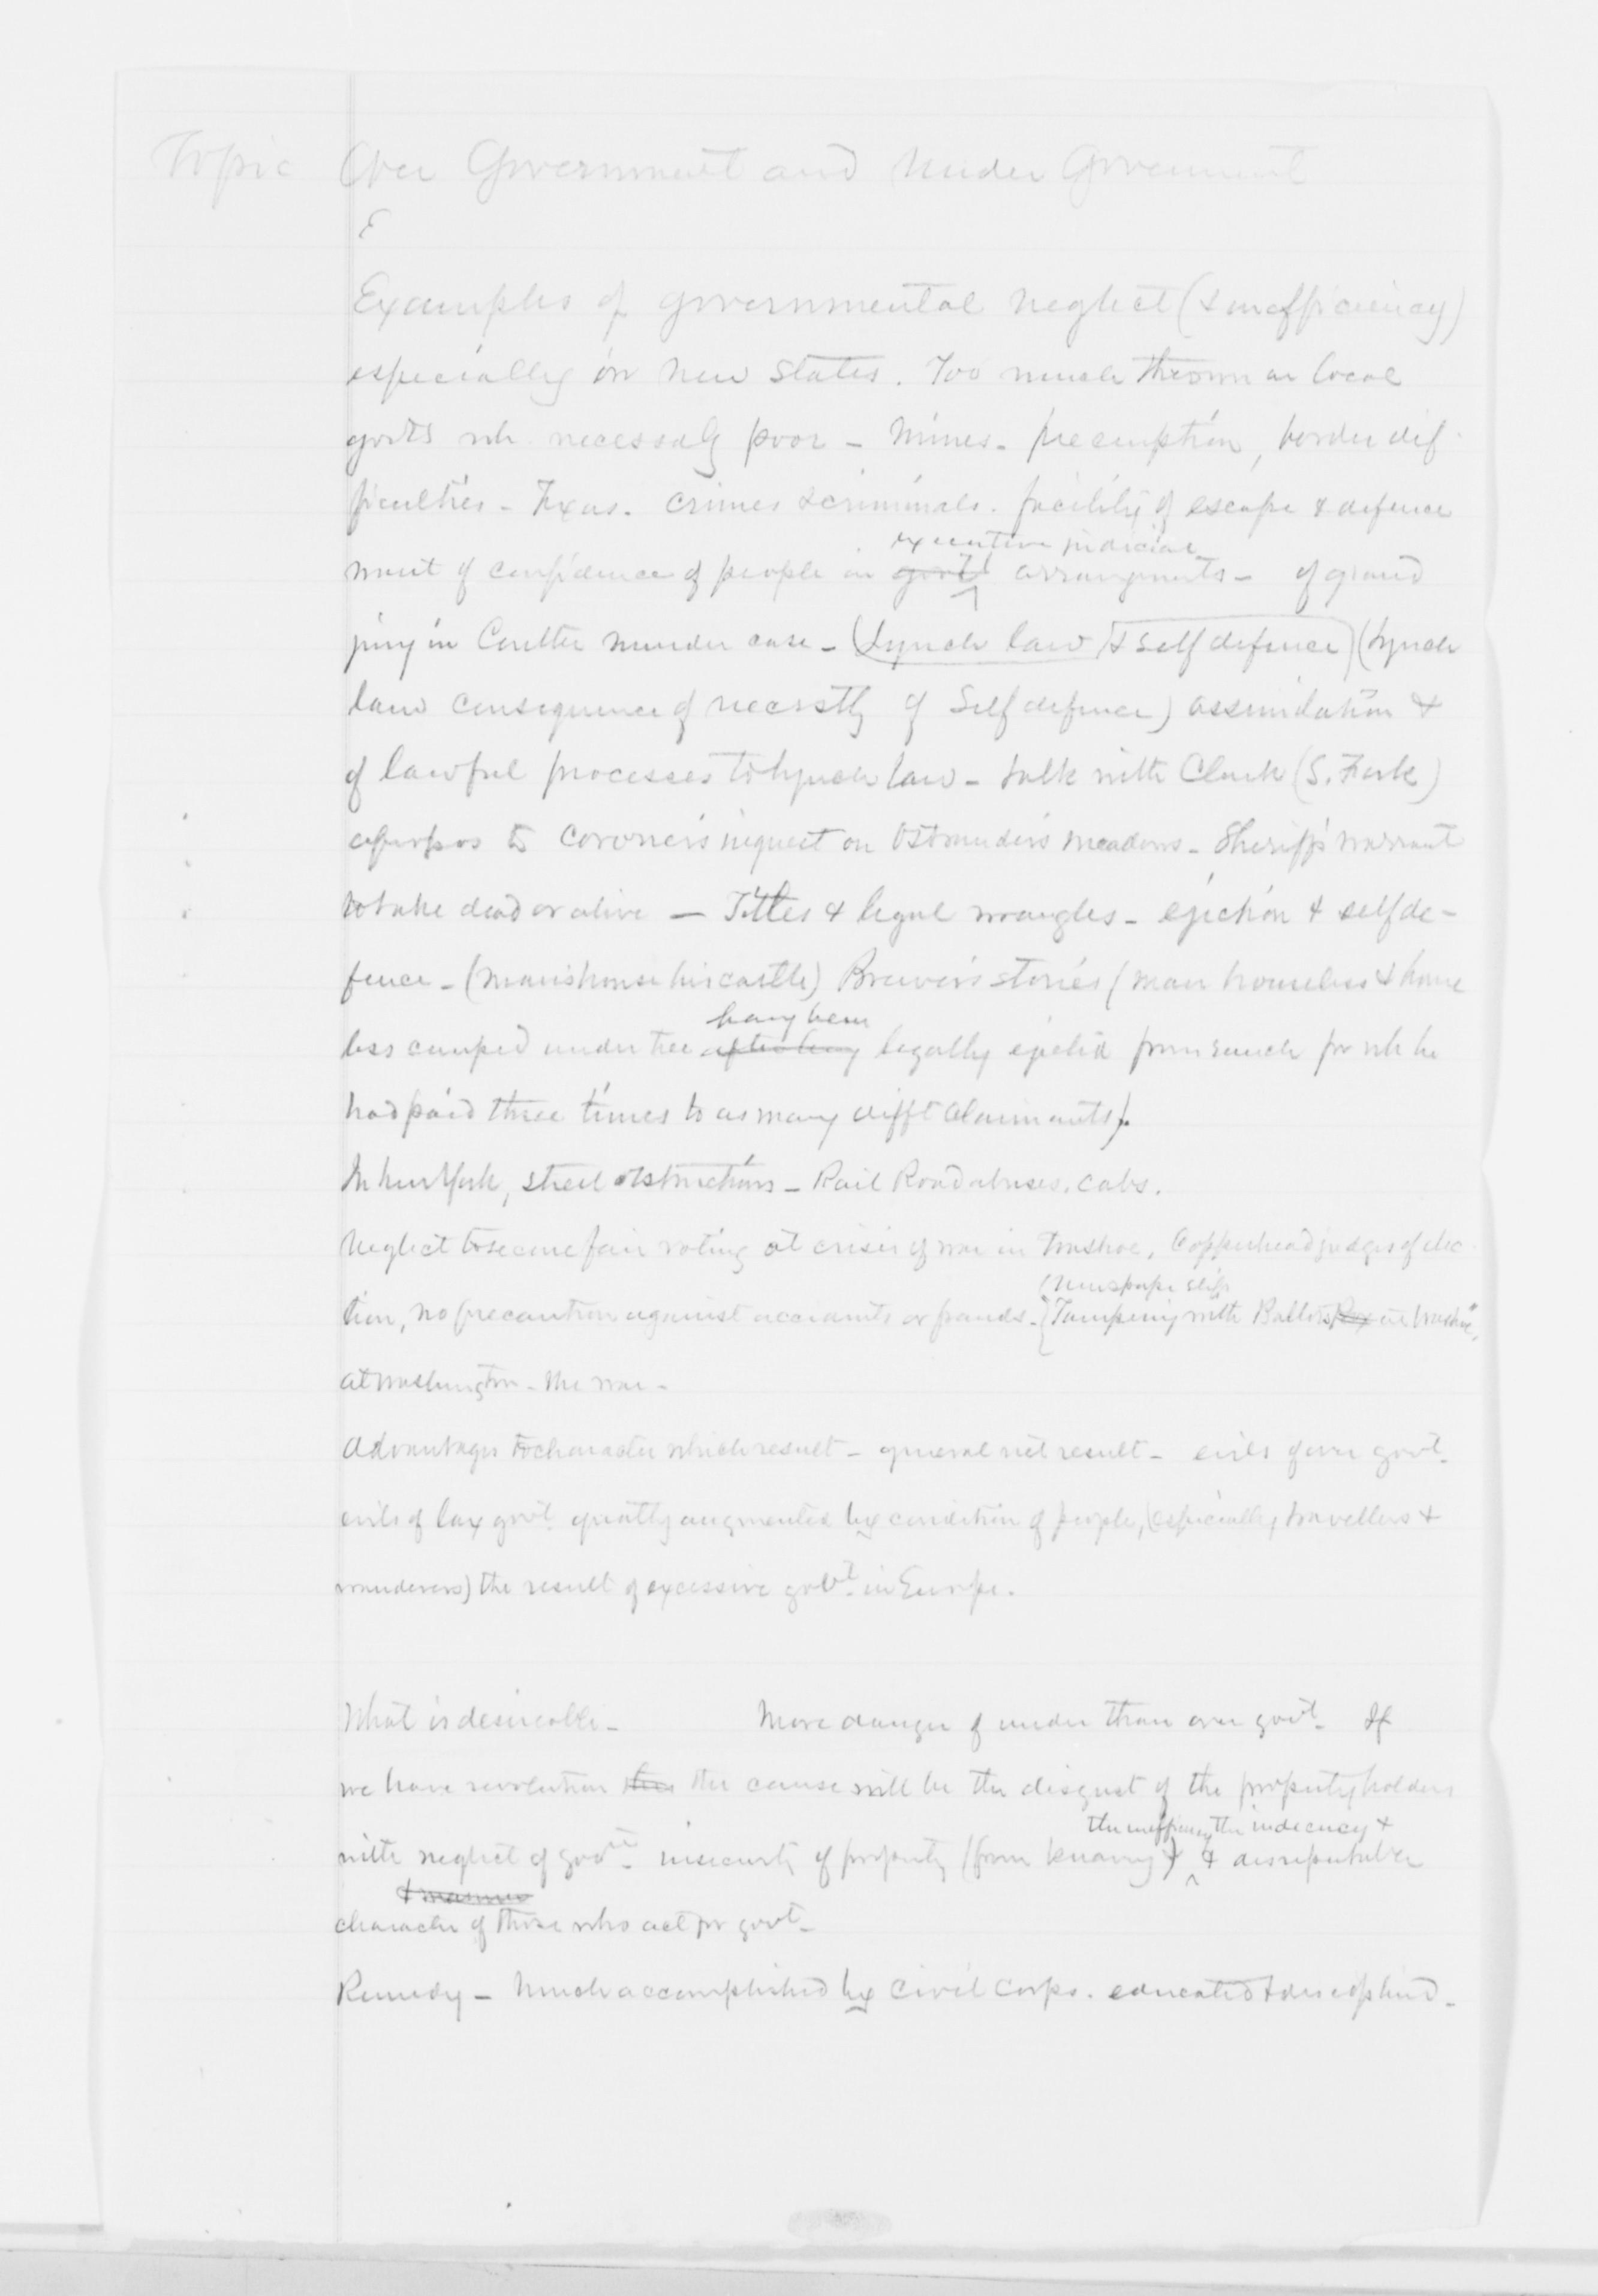 Topic Over Government and Under Government
E
Examples of governmental neglect (& inefficiency)
especially in new states. Too much thrown on local
govts wh. necessaly poor - Mines - preemption, border dif-
ficulties - Texas. Crimes & criminals. facility of escape & defence
executive judicial
want of confidence of people in govt arrangements - of grand
jury in Coulter murder case - (Lynch law & self defence) (Lynch
law consequence of necessity of Self defence) assimilation &
of lawful processes to lynch law - talk with Clark (S. Fork)
apropos to Coroner's inquest on Ostrander's meadows - Sheriff's warrant
to take dead or alive — Titles & legal wrangles - ejection & selfde-
fence - (man's house his castle) Brewer's stories (man homeless & home
havg been
less camped under tree after havg legally ejected from ranch for wh he
had paid three times to as many difft claimants).
In New York, street obstructions - Rail Road abuses. cabs.
Neglect to secure fair voting at crisis of war in Washoe, Copperhead judges of elec-
(Newspaper slip
tion, no precaution against accidents or frauds - (Tampering with Ballots Box in Washoe,
at Washington - the war -
Advantages to character which result - general net result - evils of over govt.
evils of lax govt. greatly augmented by condition of people, (especially travellers &
wanderers) the result of excessive govt. in Europe.
What is desireable - More danger of under than over govt. If
we have revolution the cause will be the disgust of the property holders
the inefficiency the indecency &
with neglect of govt - insecurity of property (from knavery) & disreputable
character of those who act for govt -
Remedy - Much accomplished by civil corps. educated & disciplined -